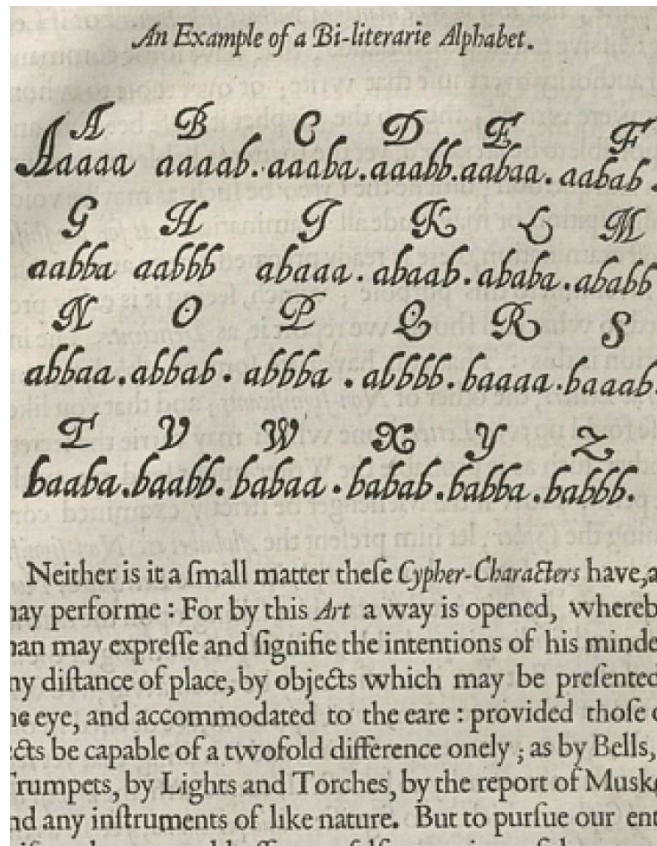 An Example of a Bi-literarie Alphabet.
A B C D E F
Aaaaa aaaab. aaaba. aaabb. aabaa. aabab.
G H I K L M
aabba aabbb abaaa. abaab. ababa. ababb
N O P Q R S
abbaa. abbab. abbba. abbbb. baaaa. baaab.
T V W X Y Z
baaba. baabb. babaa. babab. babba. babbb.
Neither is it a ſmall matter theſe Cypher-Characters have, a
ay performe : For by this Art a way is opened, whereb
an may expreſſe and ſignifie the intentions of his minde
ny diſtance of place, by objects which may be preſented
he eye, and accommodated to the eare : provided thoſe o
cts be capable of a twofold difference onely ; as by Bells,
Trumpets, by Lights and Torches, by the report of Muske
nd any inſtruments of like nature. But to purſue our ent